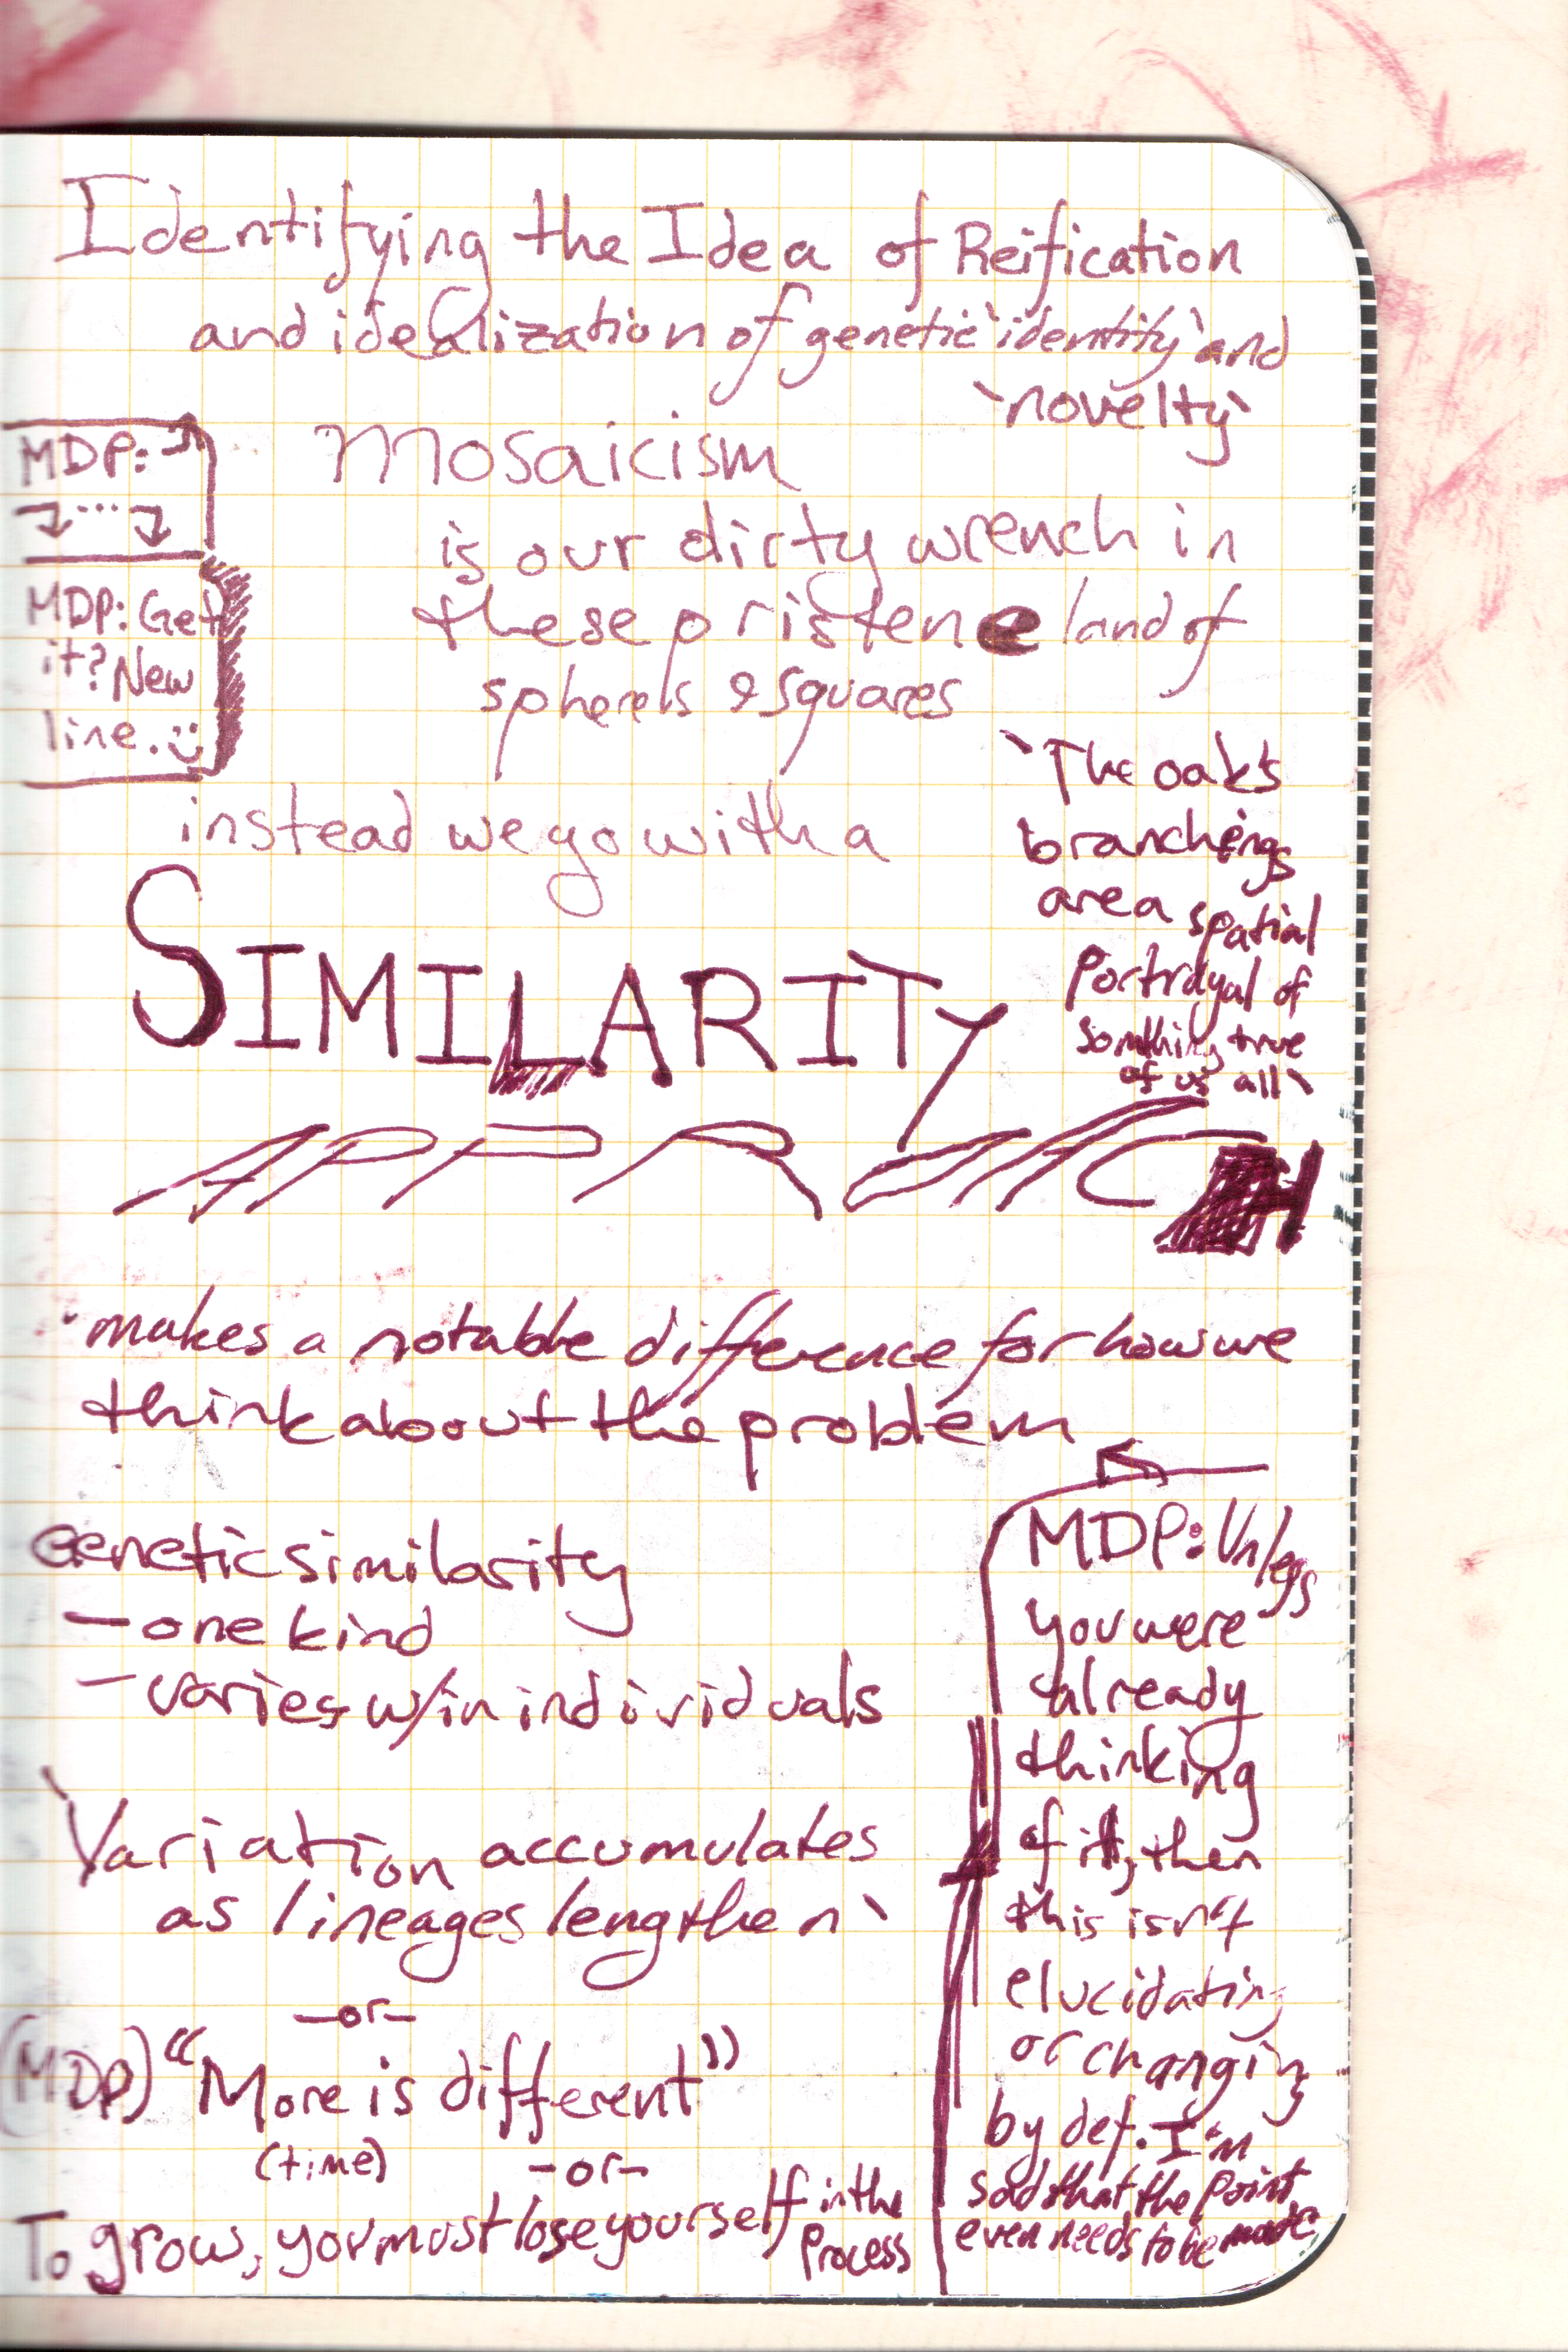 Identifying the Idea of Reification
and idealization of genetic `identity` and
`novelty`
MDP:
...
MDP: Get
it? New
line. :)
Mosaicism
is our dirty wrench in
these pristene land of
squares
instead we go with a
SIMILARITY
APPROACH
`The oak's
branchings
are a spatial
portrayal of
something true
of us all`
`makes a notable difference for how we
think about the problem
Genetic similarity
- one kind
- varies w/in individuals
`Variation accumulates
as lineages lengthen`
-or-
(MDP) "More is different"
(time)
-or-
To grow, you must lose yourself in the
process
MDP: Unless
you were
already
thinking
of it, then
this isn't
elucidating
or changing
by def. I'm
sad that the point
even needs to be made